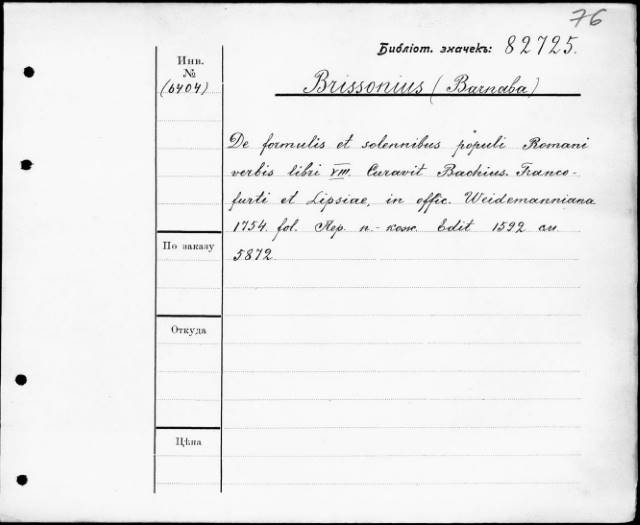 76
Библіот. значекъ: 82725.
Инв.
№
(6404)
Brissonius (Barnaba)
De formulis et solennibus populi Romani
verbis libri VIII. Curavit Bachius. Franco-
furti et Lipsiae, in offic. Weidemanniana
1754. fol. Пер. п.-кож. Edit 1592 см
5872
По заказу
Откуда
Цѣна